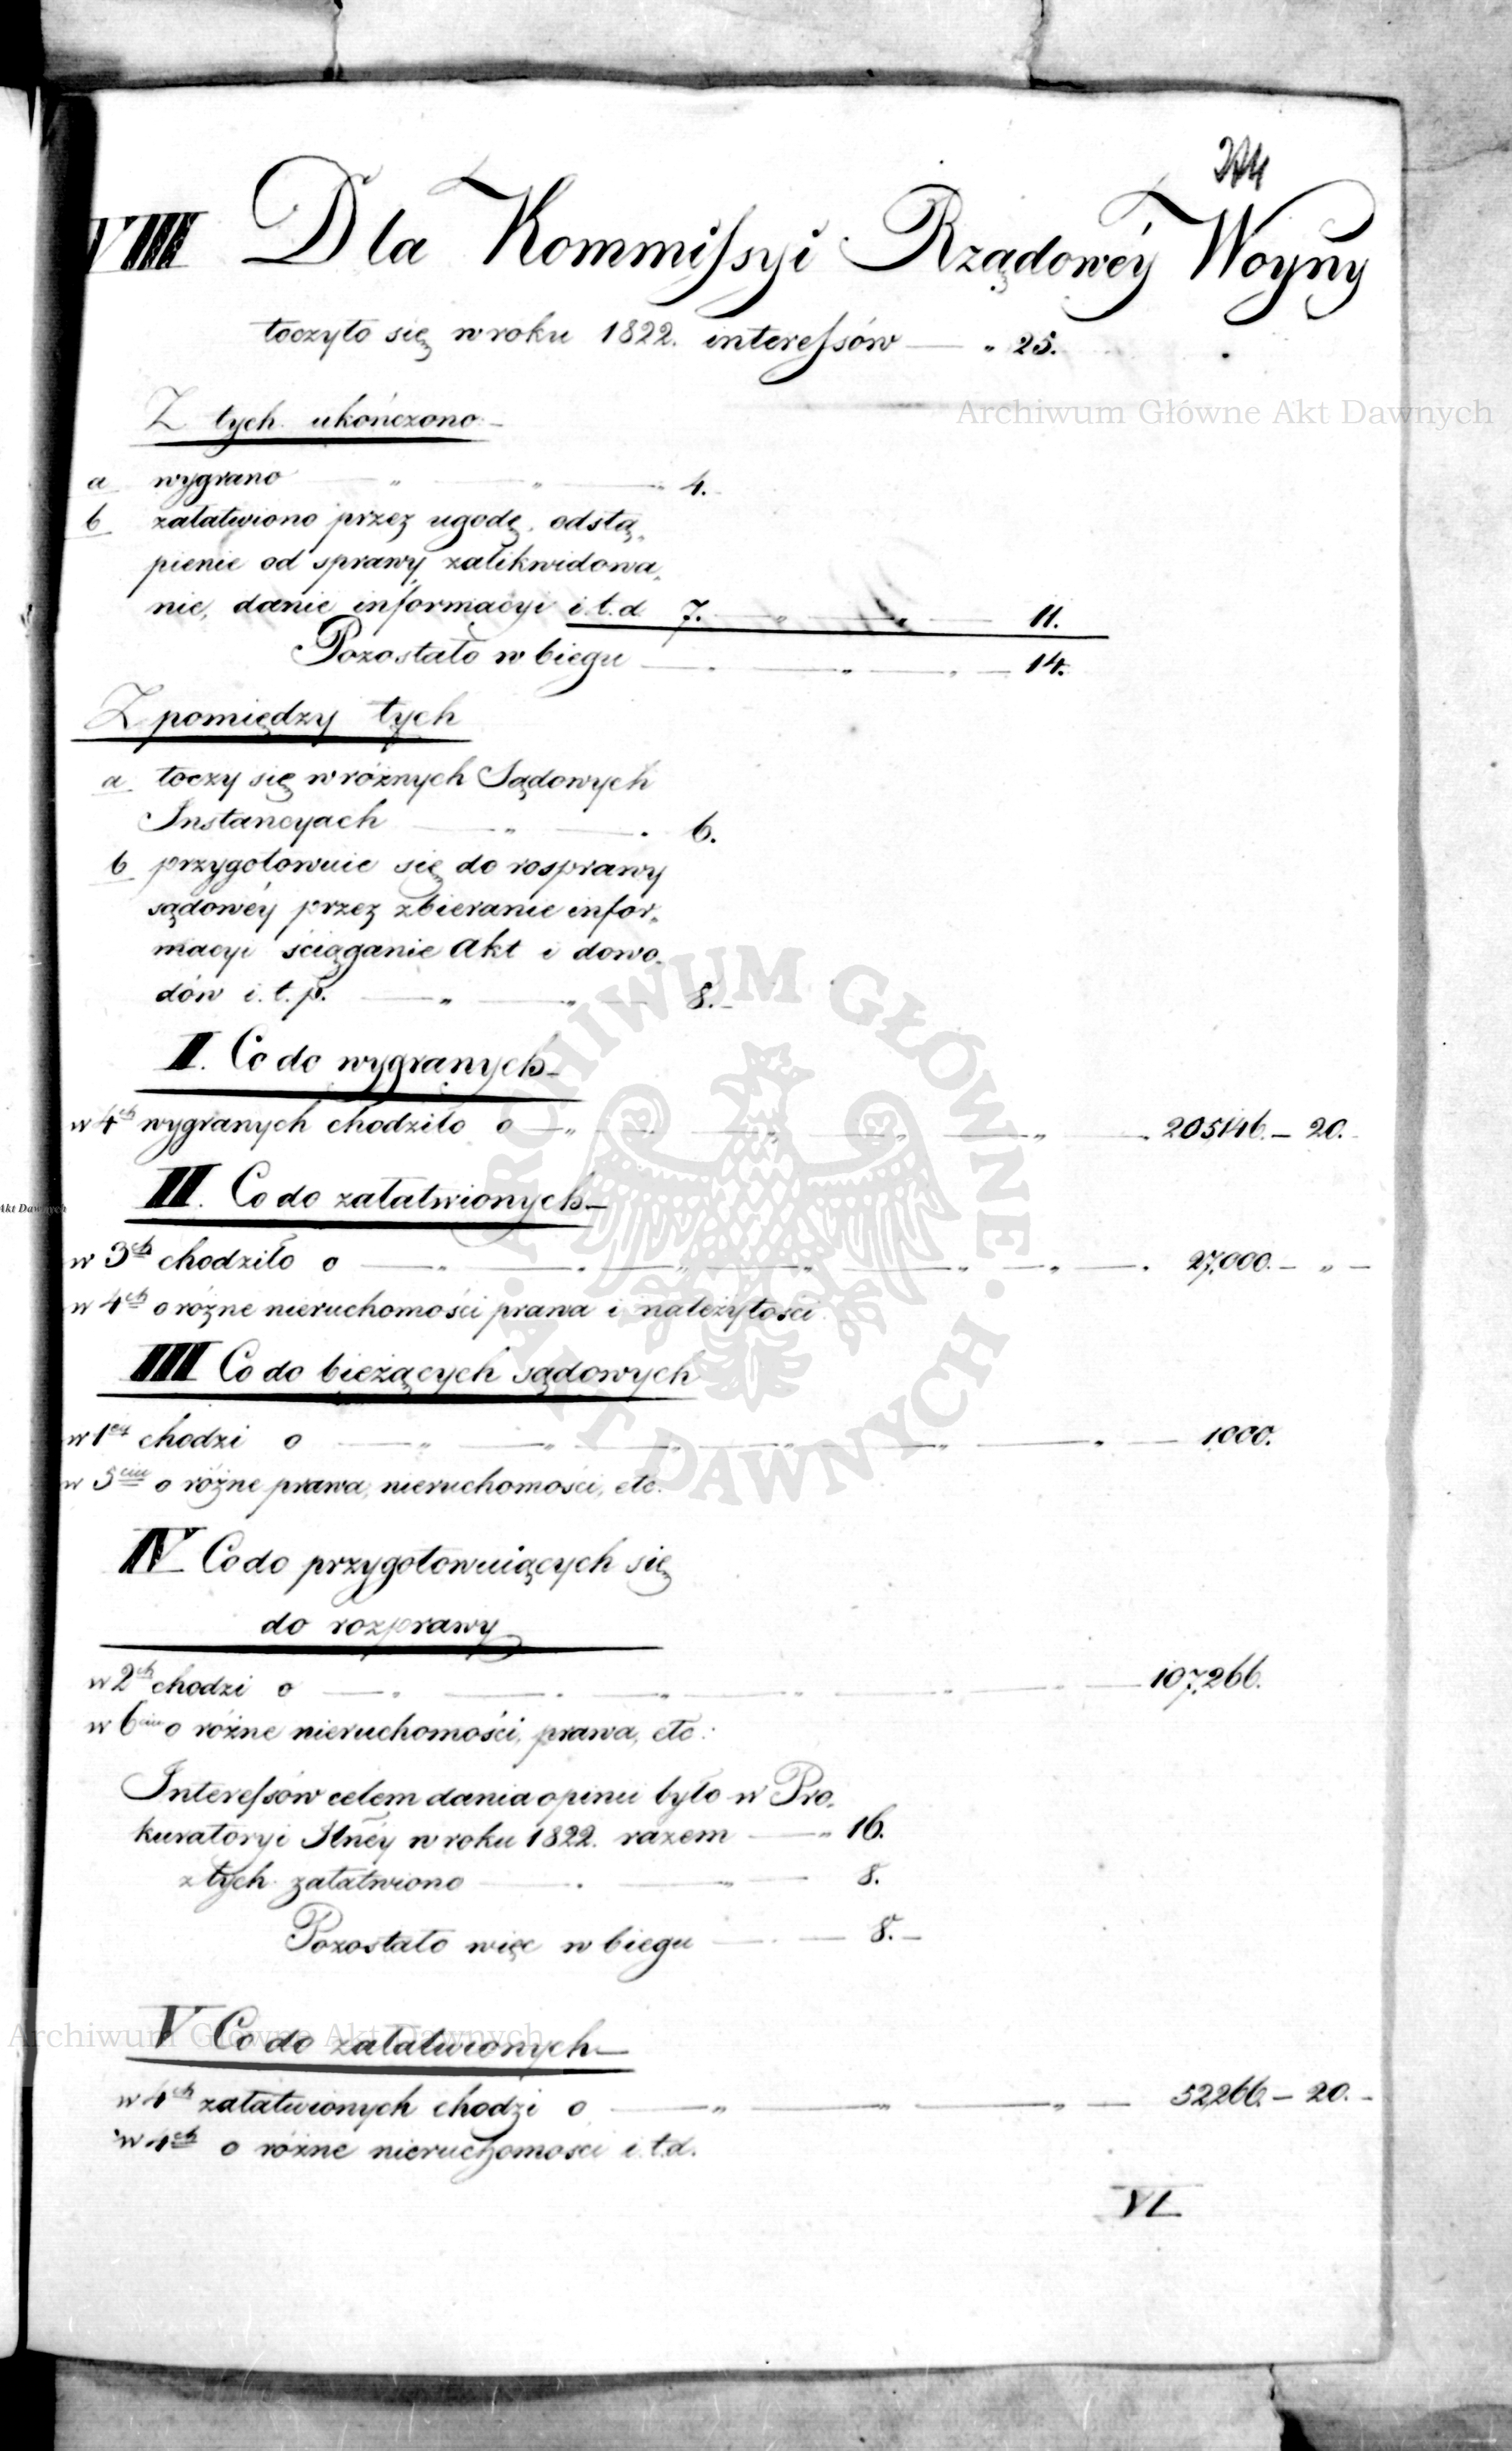 VIII Dla Kommissyi Rządowéy Woyny
toczyło się w roku 1822. interessów — „ 25.
Archiwum Główne Akt Dawnych
Z tych ukończono —
a wygrano — „ — „ — 4.
b załatwiono przez ugodę, odstą„
pienie od sprawy, zalikwidowa„
nie, danie informacyi i.t.d. 7. — „ — „ — 11.
Pozostało w biegu — „ — „ — „ — 14.
Z pomiędzy tych
a toczy się w różnych Sądowych
Instancyach — „ — „ 6.
b przygotowuie się do rosprawy
sądowéy przez zbieranie infor„
macyi ściąganie Akt i dowo„
dów i.t.p. — „ — „ — 8. —
ARCHIWUM GŁÓWNE · AKT DAWNYCH ·
II. Co do wygranych —
w 4ch wygranych chodziło o — „ — „ — „ — „ — 205,146. — 20. —
II. Co do załatwionych —
Akt Dawnych
w 3ch chodziło o — „ — „ — „ — „ — „ — „ — 27,000. — „ —
w 4ch o różne nieruchomości prawa i należytości
III Co do bieżących sądowych
w 1éy chodzi o — „ — „ — „ — „ — „ — „ — 1,000.
w 5ciu o różne prawa, nieruchomości, etc.
IV Co do przygotowuiących się
do rozprawy
w 2ch chodzi o — „ — „ — „ — „ — „ — „ — 107,266.
w 6ciu o różne nieruchomości, prawa, etc:
Interessów celem dania opinii było w Pro„
kuratoryi Jlnéy w roku 1822. razem — „ 16.
z tych załatwiono — „ — „ — 8.
Pozostało więc w biegu — „ — 8. —
Archiwum Główne Akt Dawnych
V Co do załatwionych —
w 4ch załatwionych chodzi o — „ — „ — „ — 52,266. — 20. —
w 4ch o różne nieruchomości i.t.d.
VI.